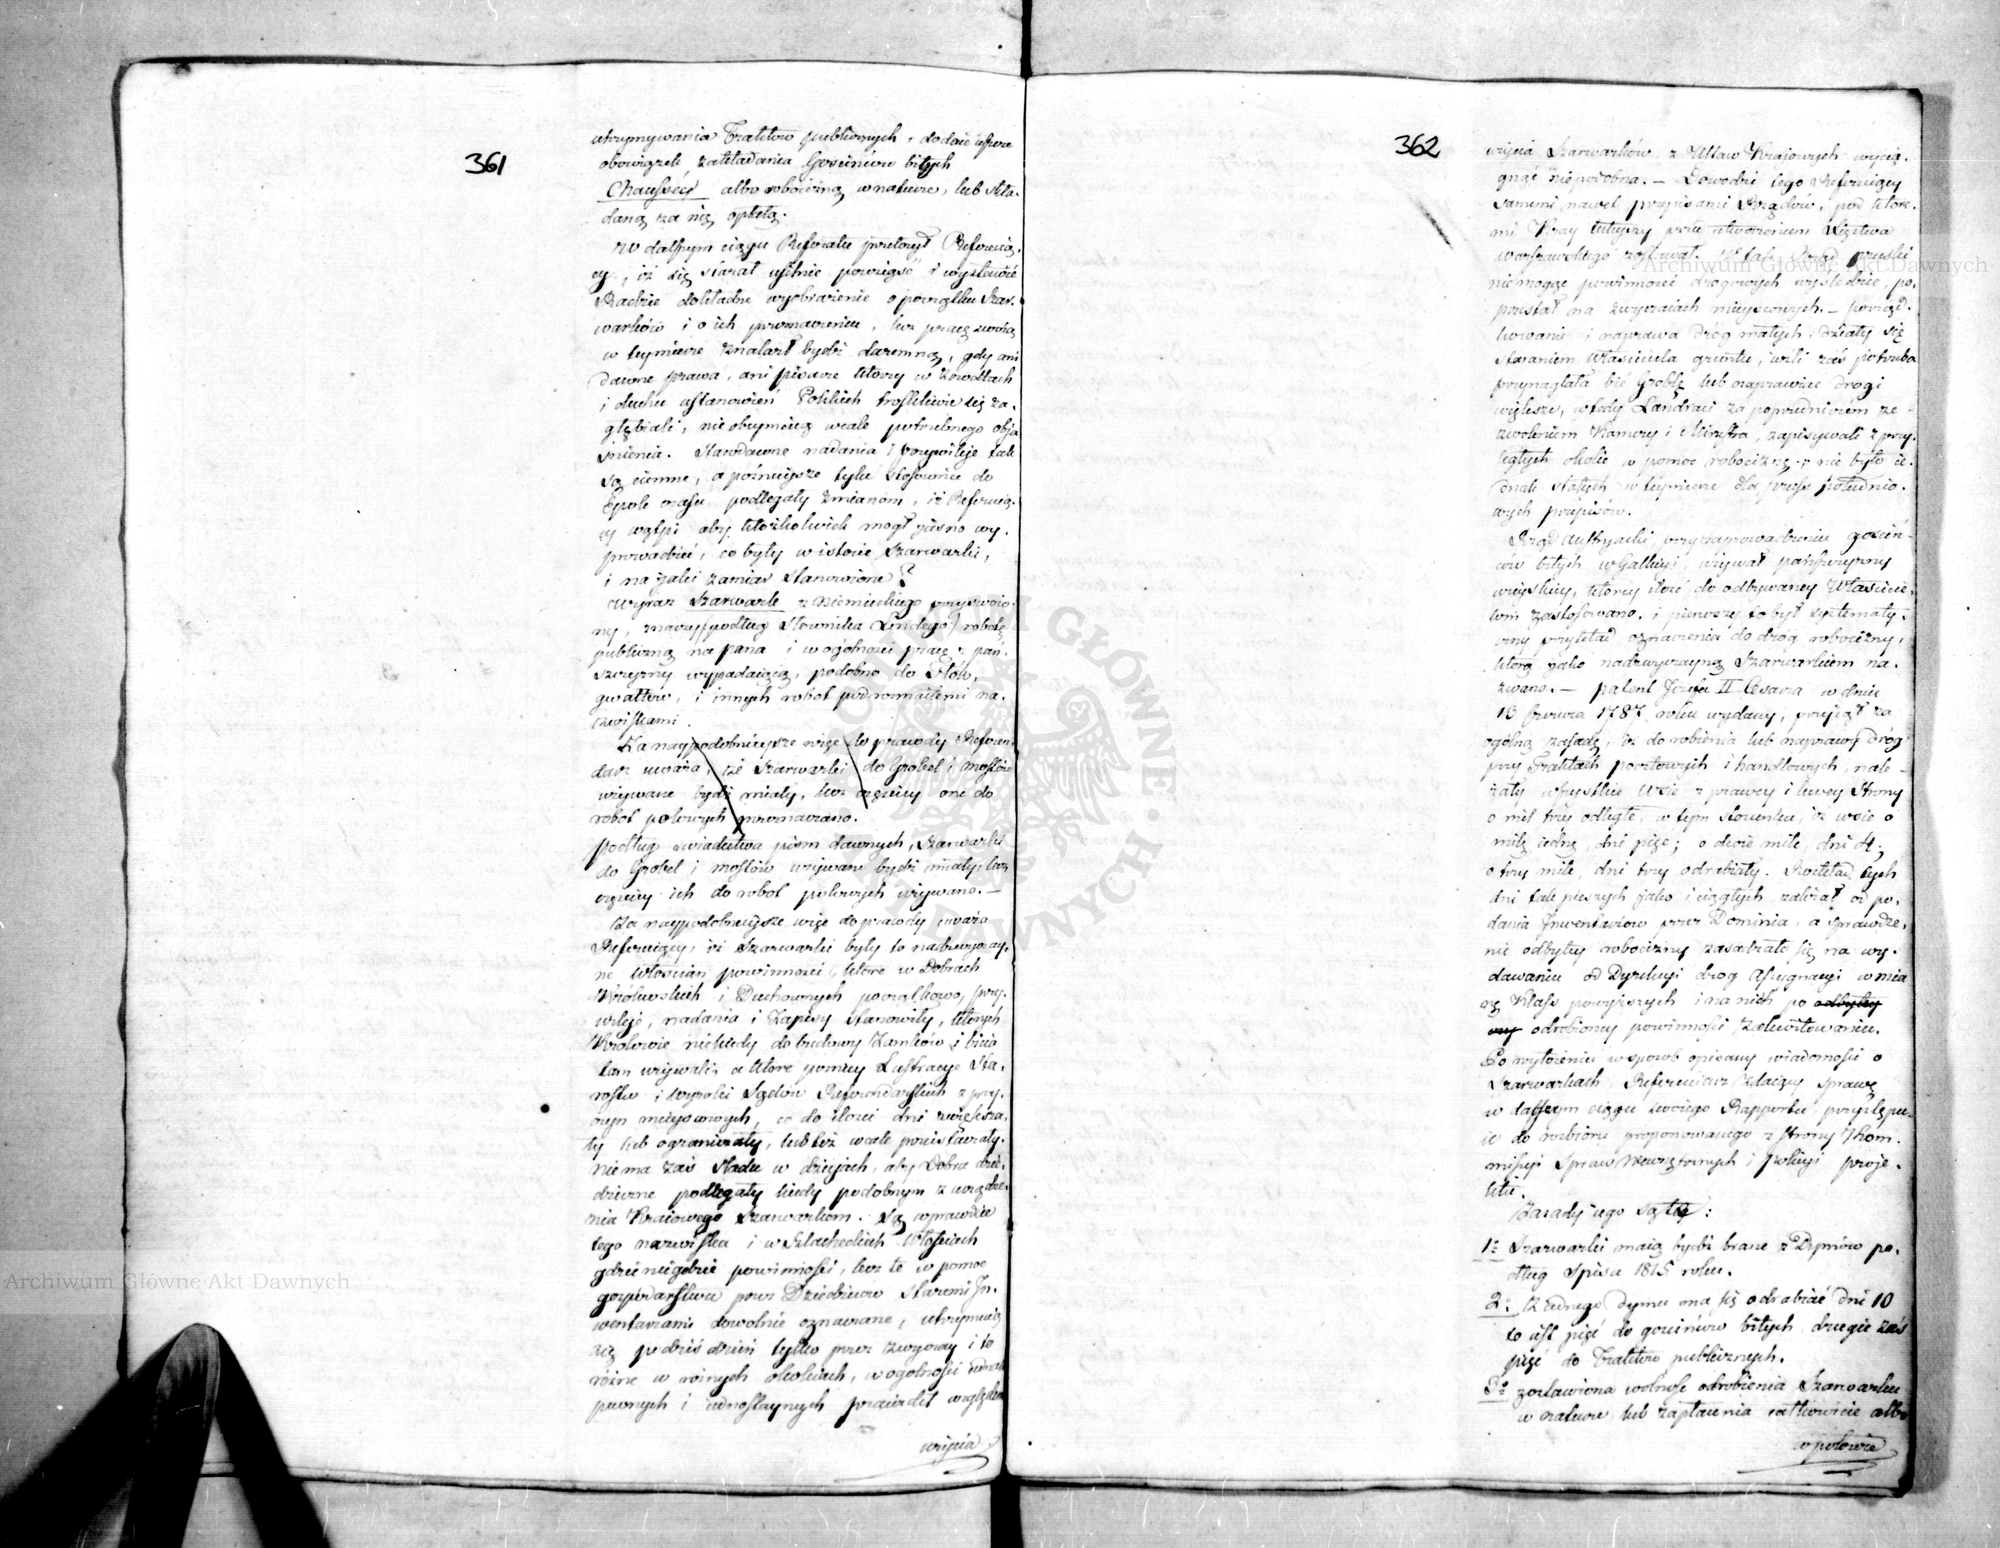 361
utrzymywania Traktów publicznych, dodaie ieszcze
obowiązek, zakładania Gościńców bitych
Chaussées albo robocizną w naturze, lub skła-
daną za nią opłatą.
W dalszym ciągu Referatu przełożył Referuią-
cy, iż się starał usilnie powziąść i wystawić
Radzie dokładne wyobrażenie o początku Szar-
warków i o ich przeznaczeniu, lecz pracę swoią
w tey mierze znalazł bydź daremną, gdy ani
dawne prawa, ani pisarze którzy w źrzodłach
i duchu ustanowień Polskich troskliwie się za-
głębiali, nie obeymuią wcale potrzebnego obja-
śnienia. Starodawne nadania i przywileje tak
są ciemne, a późnieysze tyle stosownie do
Epok czasu podlegały zmianom, iż Referuią-
cy wątpi aby ktożkolwiek mógł jasno wy-
prowadzić, co były w istocie Szarwarki,
i na jaki zamiar stanowione?
Wyraz Szarwark z Niemieckiego przyswoio-
ny, znaczy (podług Słownika Lindego) robotę
publiczną na pana i w ogólności pracę z pań-
szczyzny wypadaiącą, podobno do Tłók,
gwałtów, i innych robot pod rozmaitemi na-
zwiskami.
Za naypodobnieysze więc do prawdy Referen-
darz uważa, że Szarwarki do Grobel i mostów
używane bydź miały, lecz częściey one do
robot polowych przeznaczano.
Podług świadectwa pism dawnych, Szarwarki
do Grobel i mostów używane bydź miały, lecz
częściey ich do robot polowych używano.—
Za naypodobnieysze więc do prawdy uważa
Referuiący, iż Szarwarki były to nadzwyczay-
ne Włościan powinności, które w Dobrach
Królewskich i Duchownych początkowo, przy-
wileje, nadania i Zapisy stanowiły, których
Królowie niekiedy do budowy Zamków i bicia
tam używali, a które pomiędzy Lustracye Sta-
rostw i wyroki Sądów Referendarskich z przy-
czyn mieyscowych, co do ilości dni zwiększa-
ły lub ograniczały, lub też wcale powstawały.
Nie ma zaś śladu w dziejach, aby Dobra dzie-
dziczne podlegały kiedy podobnym z urządze-
nia Kraiowego Szarwarkom. Są wprawdzie
tego nazwiska i w Szlacheckich Włościach
gdzieniegdzie powinności, lecz te w pomoc
gospodarstwu przez Dziedziców Staremi In-
wentarzami dowolnie oznaczane, utrzymuią
się podziś dzień tylko przez zwyczay i to
różne w różnych okolicach, w ogólności iednak
pewnych i iednostaynych prawideł względem
użycia
362
użycia Szarwarków, z Ustaw Krajowych wycią-
gnąć niepodobna.— Dowodzi tego Referuiący
samemi nawet przepisami Rządów, pod które-
mi Kray tuteyszy przed utworzeniem Xięstwa
warszawskiego zostawał. I tak Rząd pruski
niemogąc powinności drogowych wyśledzić, po-
przestał na zwyczaiach mieyscowych.— porząd-
kowanie i naprawa dróg małych, działy się
staraniem Właściciela gruntu, ieżeli zaś potrzeba
przynaglała bić Groblę lub naprawiać drogi
większe, wtedy Landraci za poprzedniczem ze-
zwoleniem Kamery i Ministra, zapisywali z przy-
ległych okolic w pomoc robociznę i nie było ie-
dnak stałych w tey mierze dla pruss południo-
wych przepisów.
Rząd Austryacki przy zaprowadzeniu gościń-
ców bitych w Gallicyi, używał pańszczyzny
wieyskiey, którey ilość do odbywaney Właścicie-
lom zastosowano, i pierwszy to był systematy-
czny przykład oznaczenia do dróg robocizny,
którą jako nadzwyczayną Szarwarkiem na-
zwano.— patent Józefa II Cesarza w dniu
13 Czerwca 1787 roku wydany, przyjął za
ogólną zasadę, iż do robienia lub naprawy dróg
przy Traktach pocztowych i handlowych, nale-
żały wszystkie Wsie z prawey i lewey Strony
o mil trzy odległe, w tym stosunku, iż wsie o
milę iedną, dni pięć; o dwie mile, dni 4;
o trzy mile, dni trzy odrabiały. Rozkład tych
dni tak pieszych jako i ciągłych zależał od po-
dania Inwentarzów przez Dominia, a sprawdze-
nie odbytey robocizny zasadzało się na wy-
dawaniu od Dyrekcyi dróg Assygnacyi w mia-
rę Klass powyższych i na nich po odbytey
czy odrobioney powinności Zakwitowaniu.
Po wyłożeniu w sposób opisany wiadomości o
Szarwarkach, Referendarz Zdaiący Sprawę
w dalszym ciągu swoiego Rapportu przystępu-
ie do rozbioru proponowanego z strony Kom-
missyi Spraw Wewnętrznych i Policyi proje-
ktu.
Zasady iego są te:
1º Szarwarki maią bydź brane z Dymów po-
dług Spisu 1815 roku.
2º Z iednego dymu ma się odrabiać dni 10
to iest pięć do gościńców bitych, drugie zaś
pięć do Traktów publicznych.
3º zostawiona wolność odrobienia Szarwarku
w naturze, lub zapłacenia całkowicie albo
w połowie
Archiwum Główne Akt Dawnych
Archiwum Główne Akt Dawnych